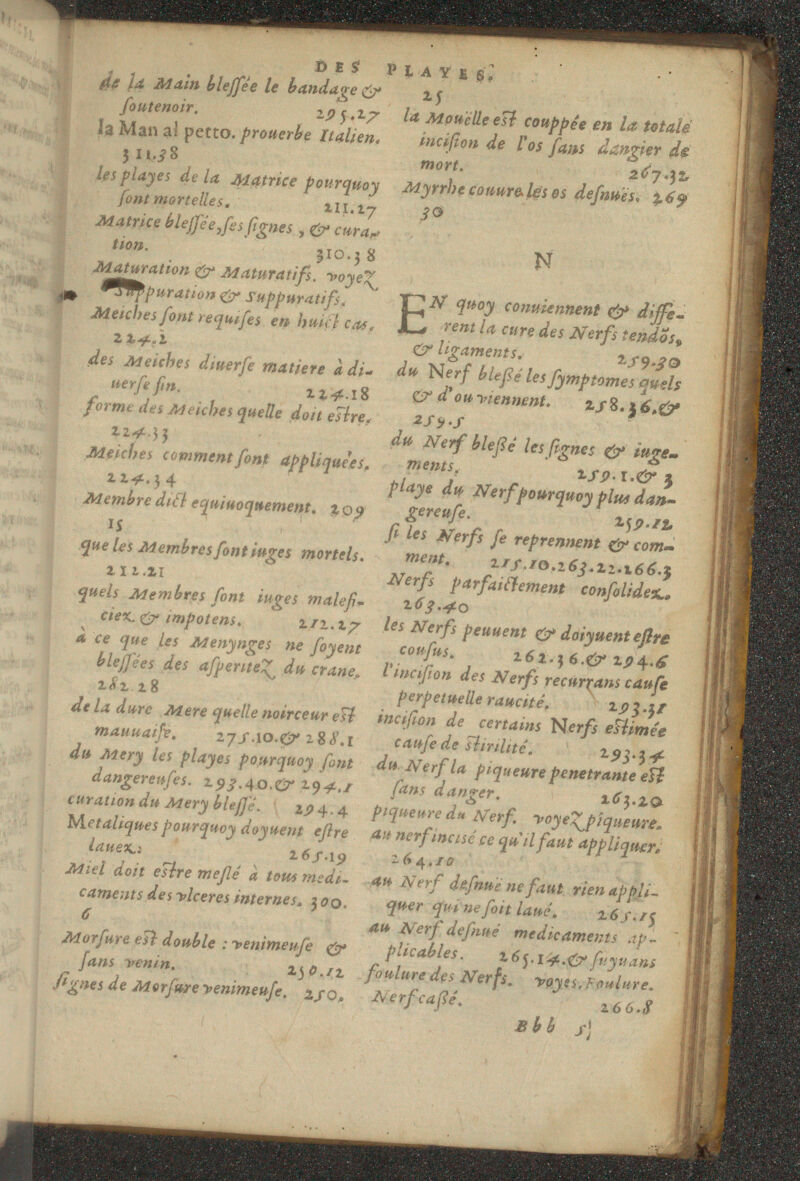 DES PLAYES.
de la Main blessée le bandage &
soutenoir. 295.27
la Man al petto. prouerbe Italien.
311.38
les playes de la Matrice pourquoy
sont mortelles. 211.27
Matrice blessée, ses signes, & cura-
tion. 310.38
Maturation & Maturatifs. voyez
Suppuration & Suppuratifs.
Meiches sont requises en huict cas.
224.2
des Meiches diuerse matiere à di-
uerse fin. 224.18
forme des Meiches quelle doit estre.
224.33
Meiches comment sont appliquées.
224.34
Membre dict equiuoquement. 209
15
que les Membres sont iuges mortels.
211.21
quels Membres sont iuges malefi-
ciez. & impotens. 212.27
à ce que les Menynges ne soyent
blessées des asperitez du crane.
282 28
de la dure Mere quelle noirceur est
mauuaise. 275.10.& 288.1
du Mery les playes pourquoy sont
dangereuses. 293.40.& 294.1
curation du Mery blessé. 294.4
Metaliques pourquoy doyuent estre
lauez.: 265.19
Miel doit estre meslé à tous medi-
caments des vlceres internes. 300.
6
Morsure est double : venimeuse &
sans venin. 250.12
signes de Morsure venimeuse. 250.
25
la Mouëlle est couppée en la totale
incision de l'os sans dangier de
mort. 267.32
Myrrhe couure les os desnués. 269
30
N
EN quoy conuiennent & diffe-
rent la cure des Nerfs tendõs,
& ligaments. 259.30
du Nerf blessé les symptomes quels
& d'ou viennent. 258.36.&
259.5
du Nerf blessé les signes & iuge-
ments. 259.1.& 3
playe du Nerf pourquoy plus dan-
gereuse. 259.12
si les Nerfs se reprennent & com-
ment. 215.10.263.22.266.3
Nerfs parfaictement consolidez.
263.40
les Nerfs peuuent & doiyuent estre
cousus. 262.36.& 294.6
l'incision des Nerfs recurrans cause
perpetuelle raucité. 293.31
incision de certains Nerfs estimée
cause de stirilité. 293.34
du Nerf la piqueure penetrante est
sans danger. 263.20
piqueure du Nerf. voyez piqueure.
au nerf incisé ce qu'il faut appliquer.
264.10
au Nerf desnué ne faut rien appli-
quer qui ne soit laué. 265.15
au Nerf desnué medicaments ap-
plicables. 265.14.& suyuans
foulure des Nerfs. voyes. Foulure.
Nerf cassé. 266.8
Bbb 5